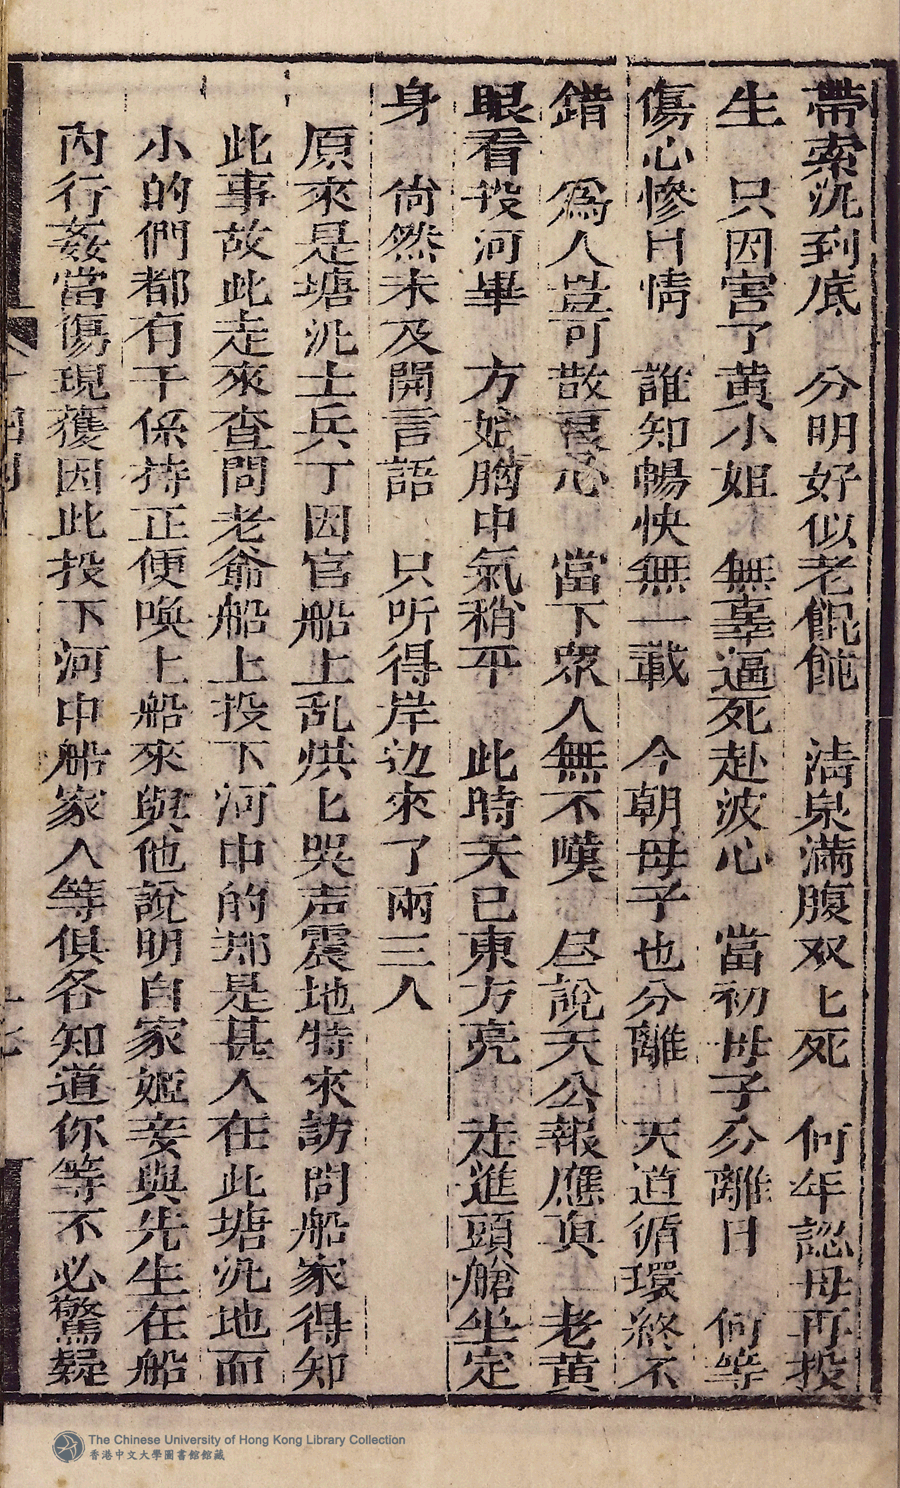 帶索沉到底　分明好似老餛飩　清泉滿腹双匕死　何年認母再投
生　只因害了黄小姐　無辜逼死赴波心　當初母子分離日　何等
傷心慘日情　誰知暢快無一載　今朝母子也分離　天道循環終不
錯　爲人豈可散良心　當下眾人無不嘆　尽說天公報應真　老黄
眼看投河畢　方始胸中氣稍平　此時天已東方亮　走進頭艙坐定
身　尙然未及開言語　只听得岸边來了兩三人
原來是塘汛士兵丁因官船上乱烘匕哭声震地特來訪問船家得知
此事故此走來查問老爺船上投下河中的那是甚人在此塘汛地而
小的們都有干係持正便喚上船來與他說明自家姬妾與先生在船
內行姦當傷現獲因此投下河中船家人等俱各知道你等不必驚疑
十七
The Chinese University of Hong Kong Library Collection
香港中文大學圖書館館藏